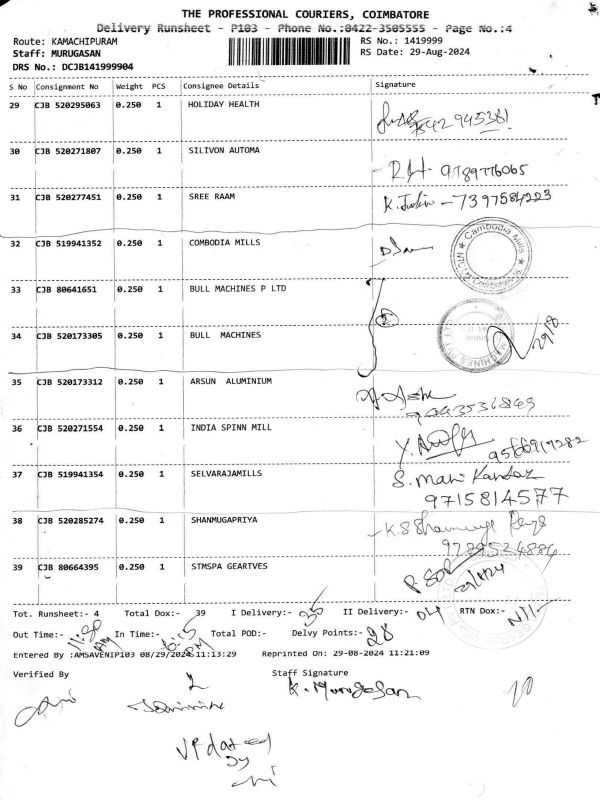 THE PROFESSIONAL COURIERS, COIMBATORE
Delivery Runsheet - P103 - Phone No.:0422-3505555 - Page No.:4
Route: KAMACHIPURAM RS No.: 1419999
Staff: MURUGASAN RS Date: 29-Aug-2024
DRS No.: DCJB141999904
S No Consignment No Weight PCS Consignee Details Signature
29 CJB 520295063 0.250 1 HOLIDAY HEALTH
30 CJB 520271807 0.250 1 SILIVON AUTOMA
9789776065
31 CJB 520277451 0.250 1 SREE RAAM
7397584223
32 CJB 519941352 0.250 1 COMBODIA MILLS
Cambodia Mills
33 CJB 80641651 0.250 1 BULL MACHINES P LTD
2
34 CJB 520173305 0.250 1 BULL MACHINES
35 CJB 520173312 0.250 1 ARSUN ALUMINIUM
36 CJB 520271554 0.250 1 INDIA SPINN MILL
9566917282
37 CJB 519941354 0.250 1 SELVARAJAMILLS
S. Mani Kandan
9715814577
38 CJB 520285274 0.250 1 SHANMUGAPRIYA
K.S Shanmuga Priya
39 CJB 80664395 0.250 1 STMSPA GEARTVES
Tot. Runsheet:- 4 Total Dox:- 39 I Delivery:- 35 II Delivery:- 04 RTN Dox:- NIL
Out Time:- In Time:- Total POD:- Delvy Points:- 28
Entered By :AMSAVENIP103 08/29/2024 11:13:29 Reprinted On: 29-08-2024 11:21:09
Verified By Staff Signature
K. Murugesan
Updated
by